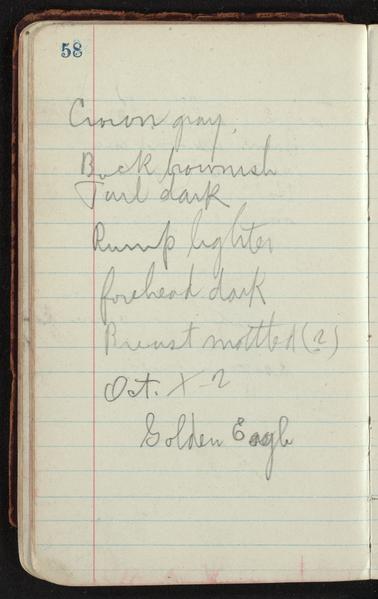 58
Crown gray,
Back brownish
Tail dark
Rump lighter
forehead dark
Breast mottled (?)
Oct. X-2
Golden Eagle